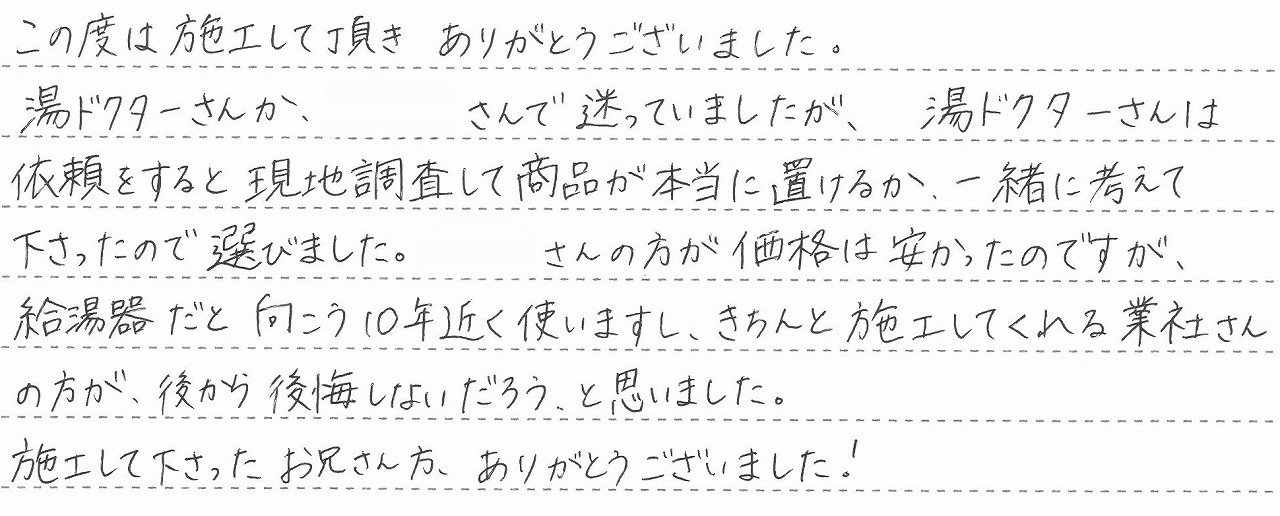 この度は施工して頂き ありがとうございました。
湯ドクターさんか、 さんで迷っていましたが、 湯ドクターさんは
依頼をすると現地調査して商品が本当に置けるか、一緒に考えて
下さったので選びました。 さんの方が価格は安かったのですが、
給湯器だと向こう10年近く使いますし、きちんと施工してくれる業社さん
の方が、後から後悔しないだろう、と思いました。
施工して下さったお兄さん方、ありがとうございました!